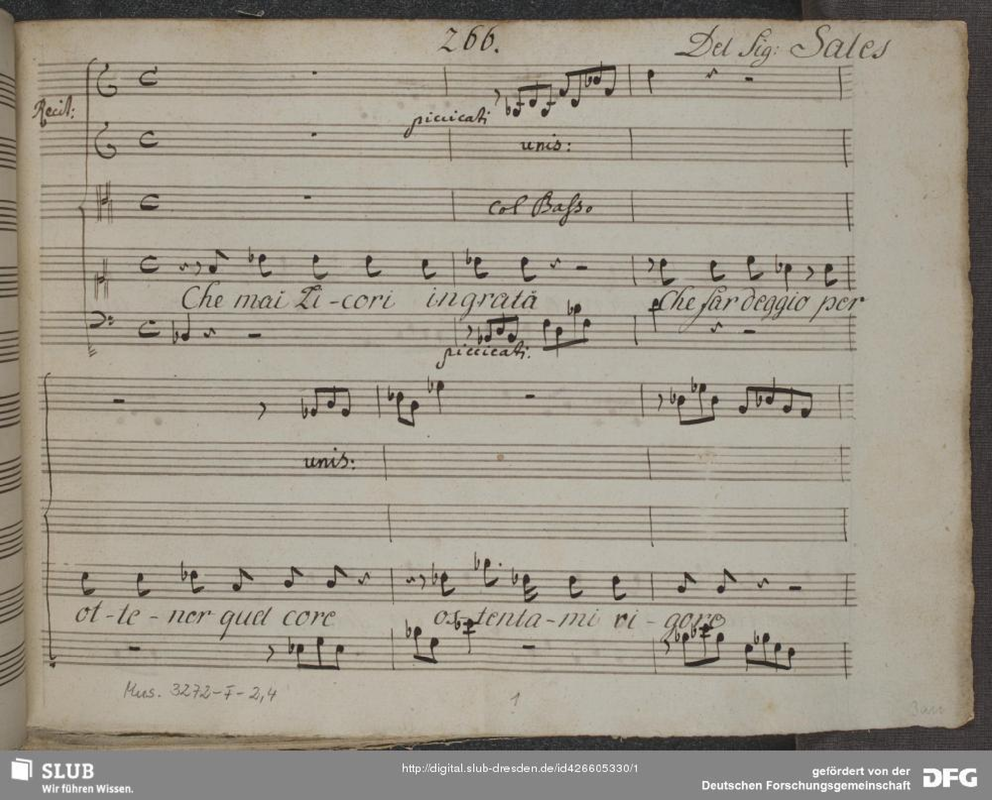 266.
Del Sig: Sales
Recit:
piccicati
unis:
col Basso
Che mai Li-cori ingrata Che far deggio per
piccicati:
unis:
ot-te-ner quel core os-tenta-mi ri-gore
Mus. 3272-F-2,4
1
SLUB
Wir führen Wissen.
http://digital.slub-dresden.de/id426605330/1
gefördert von der
Deutschen Forschungsgemeinschaft
DFG